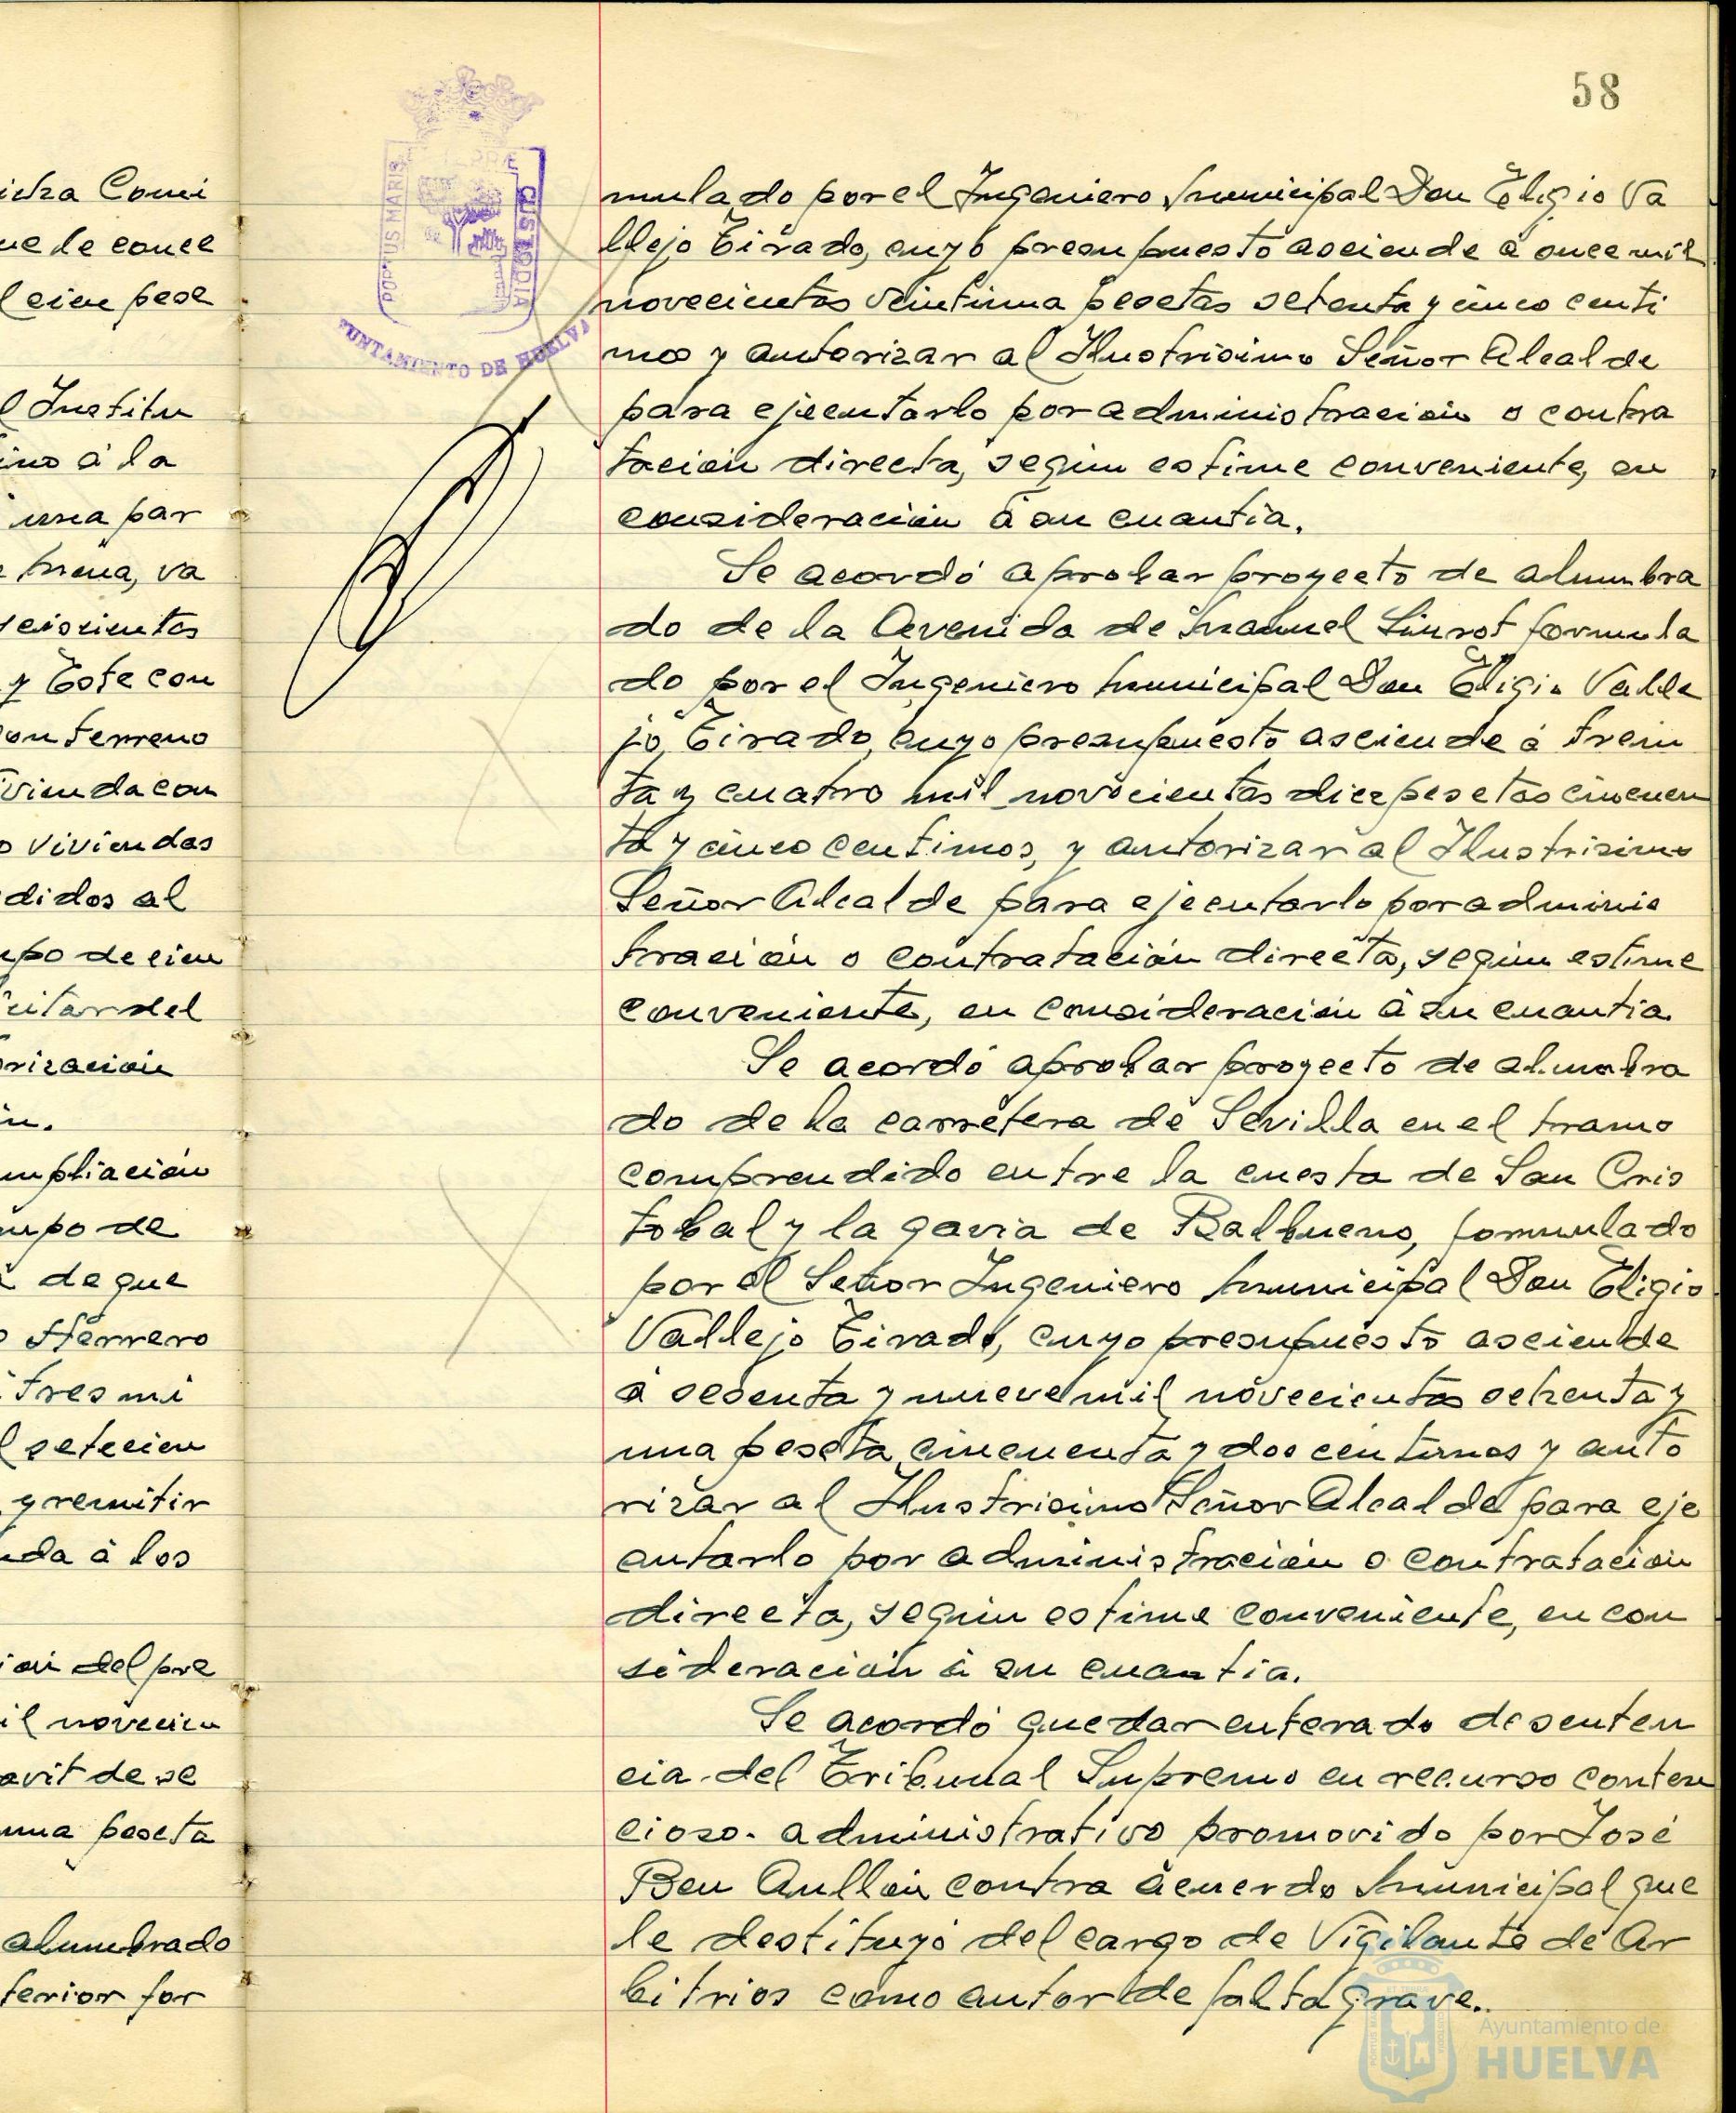 icha Comi
ue le conce
l cien pese
l Institu
ino á la
una par
hiena, va
seiscientos
y Este con
on terreno
vienda con
o viviendas
didos al
upo de cien
citar del
orización
ón.
mpliación
upo de
á de que
o Herrero
tres mi
l setecien
y remitir
da á los
ión del pre
il novecien
avit de se
una peseta
alumbrado
terior for
58
PORTUS MARIS
TERRÆ
CUSTODIA
AYUNTAMIENTO DE HUELVA
mulado por el Ingeniero Municipal Don Eligio Va
llejo Tirado, cuyo presupuesto asciende á once mil
novecientas veintiuna pesetas setenta y cinco centi
mos y autorizar al Ilustrisimo Señor Alcalde
para ejecutarlo por administración o contra
tación directa, según estime conveniente, en
consideración á su cuantia.
Se acordó aprobar proyecto de alumbra
do de la Avenida de Manuel Siurot formula
do por el Ingeniero Municipal Don Eligio Valle
jo Tirado, cuyo presupuesto asciende á trein
ta y cuatro mil novecientas diez pesetas cincuen
ta y cinco centimos, y autorizar al Ilustrisimo
Señor Alcalde para ejecutarlo por adminis
tración o contratación directa, según estime
conveniente, en consideración á su cuantia
Se acordó aprobar proyecto de alumbra
do de la carretera de Sevilla en el tramo
comprendido entre la cuesta de San Cris
tobal y la gavia de Balbueno, formulado
por el Señor Ingeniero Municipal Don Eligio
Vallejo Tirado, cuyo presupuesto asciende
á sesenta y nueve mil novecientas ochenta y
una peseta cincuenta y dos centimos y auto
rizar al Ilustrisimo Señor Alcalde para eje
cutarlo por administración o contratación
directa, según estime conveniente, en con
sideración á su cuantia.
Se acordó quedar enterado de senten
cia del Tribunal Supremo en recurso conten
cioso-administrativo promovido por José
Beu Aullón contra acuerdo Municipal que
le destituyó del cargo de Vigilante de Ar
bitrios como autor de falta grave.
Ayuntamiento de
HUELVA